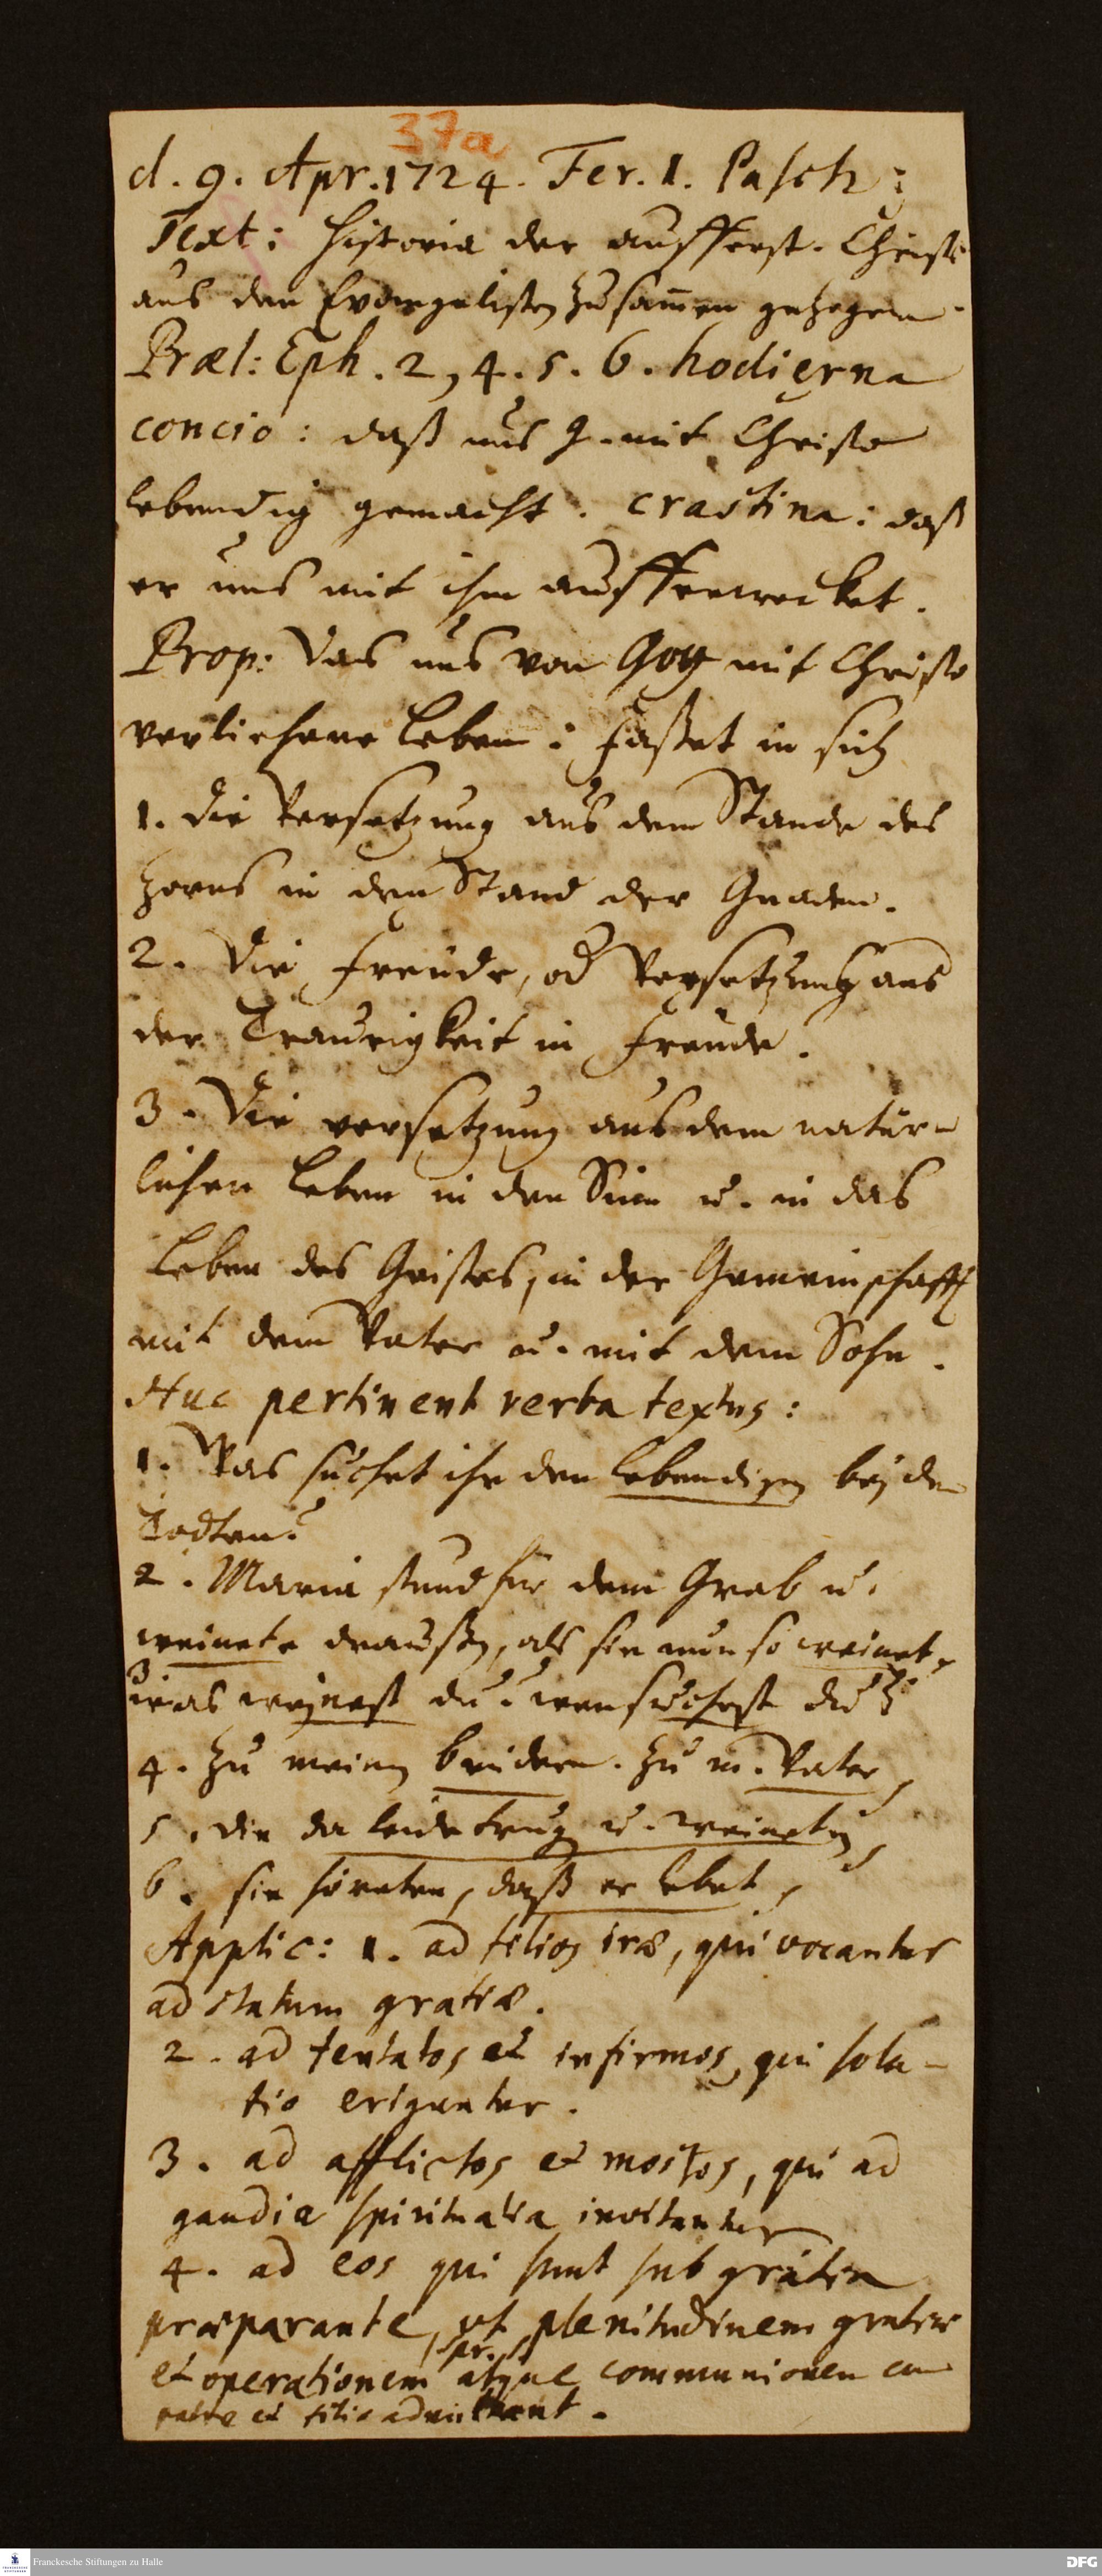 37a
d. 9. Apr. 1724. Fer. 1. Pasch:
Text: Historia der aufferst. Christi
aus den Evangelisten zusam̄en gezogen.
Præl: Eph. 2, 4. 5. 6. hodierna
concio: daß uns G. mit Christo
lebendig gemacht. crastina: daß
er uns mit ihm aufferwecket.
Prop: Das uns von Gott mit Christo
verliehene Leben: fasset in sich
1. die Versetzung aus dem Stande des
Zorns in den Stand der Gnaden.
2. Die Freude, od Versetzung aus
der Traurigkeit in Freude.
3. Die versetzung aus dem natür-
lichen Leben in den Sinn u. in das
Leben des Geistes, in der Gemeinschafft
mit dem Vater u. mit dem Sohn.
Huc pertinent verba textus:
1. Was suchet ihr den Lebendigen bey den
Todten?
2. Maria stund für dem Grab u.
weinete draussen, als sie nun so weinet,
3. was weinest du? wen suchest du?
4. Zu meinen brüdern. Zu m. Vater,
5. die da leide trugen u. weineten,
6. sie höreten, daß er lebet,
Applic: 1. ad filios iræ, qui vocantur
ad statum gratiæ.
2. ad tentatos et infirmos, qui sola-
tio eriguntur.
3. ad afflictos et mœstos, qui ad
gaudia spiritualia invitantur
4. ad eos qui sunt sub gratia
præparante, ut plenitudinem gratiæ
et operationem spr. atque communionem cum
patre et filio admittant.
Franckesche Stiftungen zu Halle
DFG